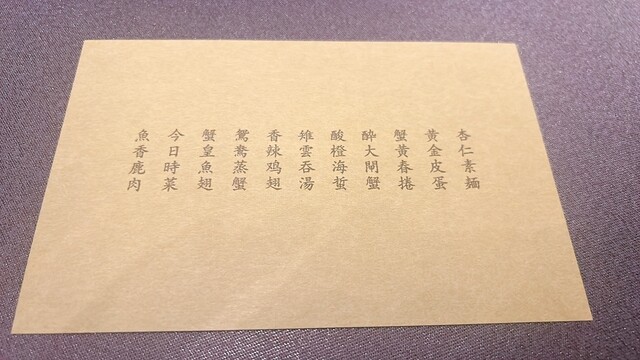 杏仁素麺
黃金皮蛋
蟹黃春捲
醉大閘蟹
酸橙海蜇
雉雲吞湯
香辣鸡翅
鴛鴦蒸蟹
蟹皇魚翅
今日時菜
魚香鹿肉